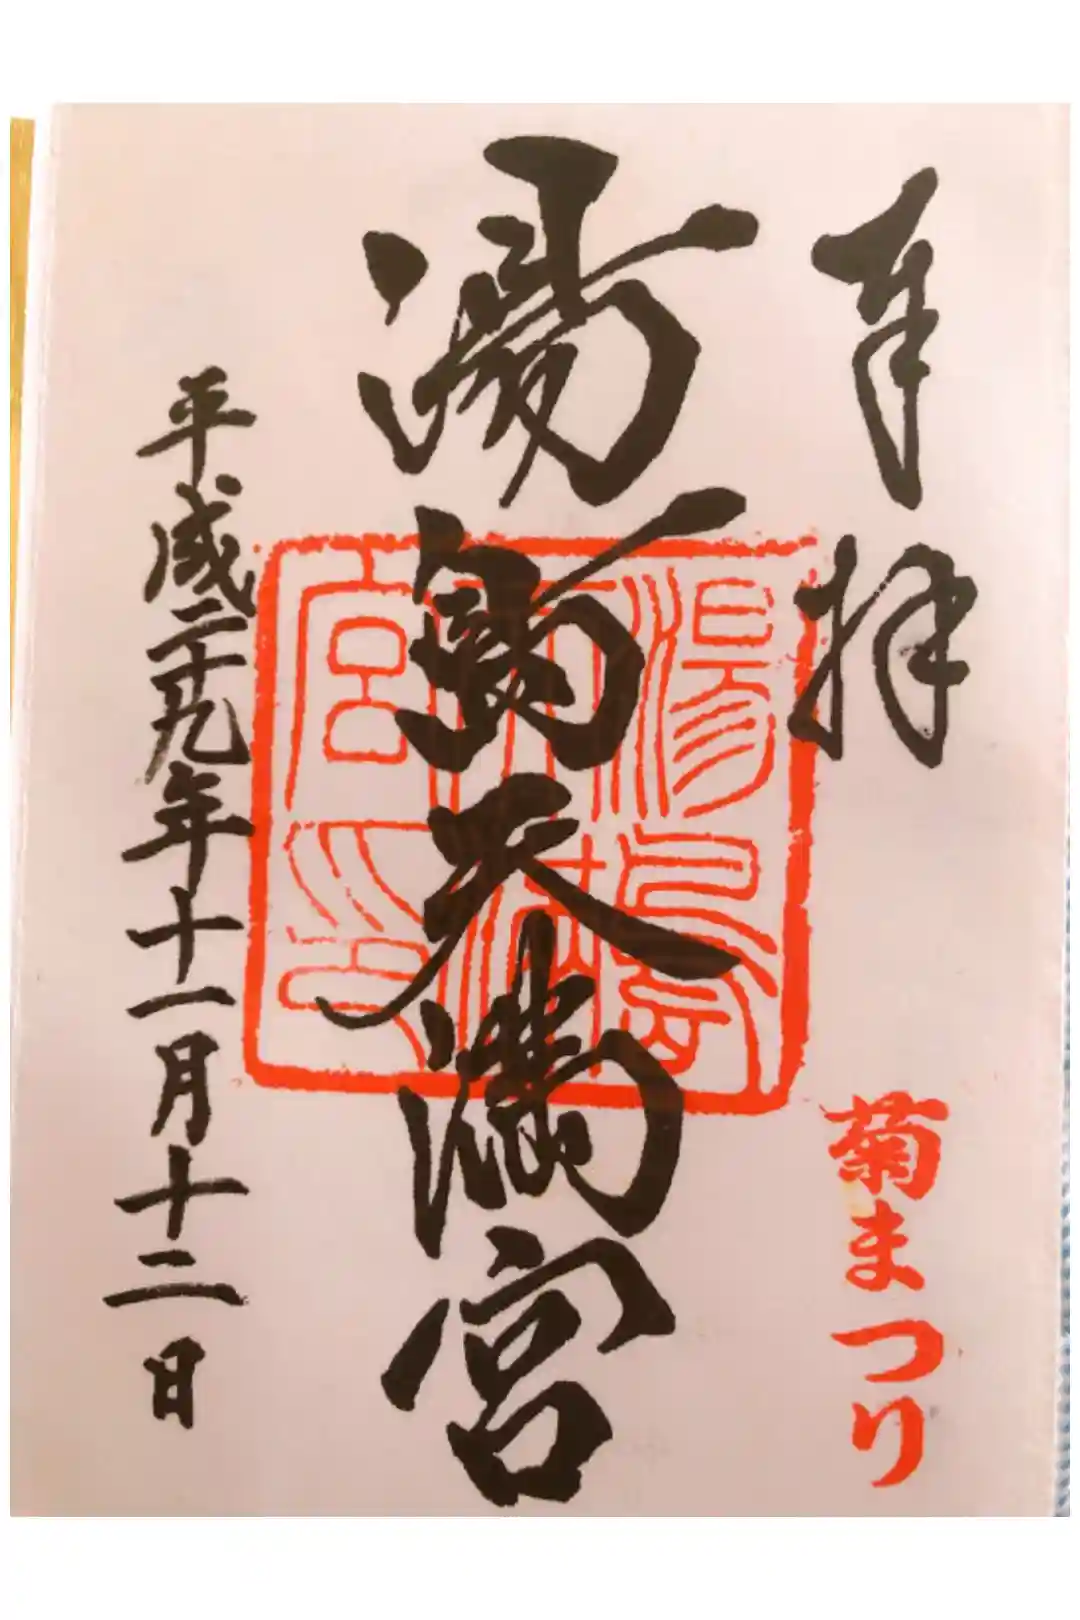 奉拝
菊まつり
湯島天満宮
湯島
天満
宮印
平成二十九年十一月十二日